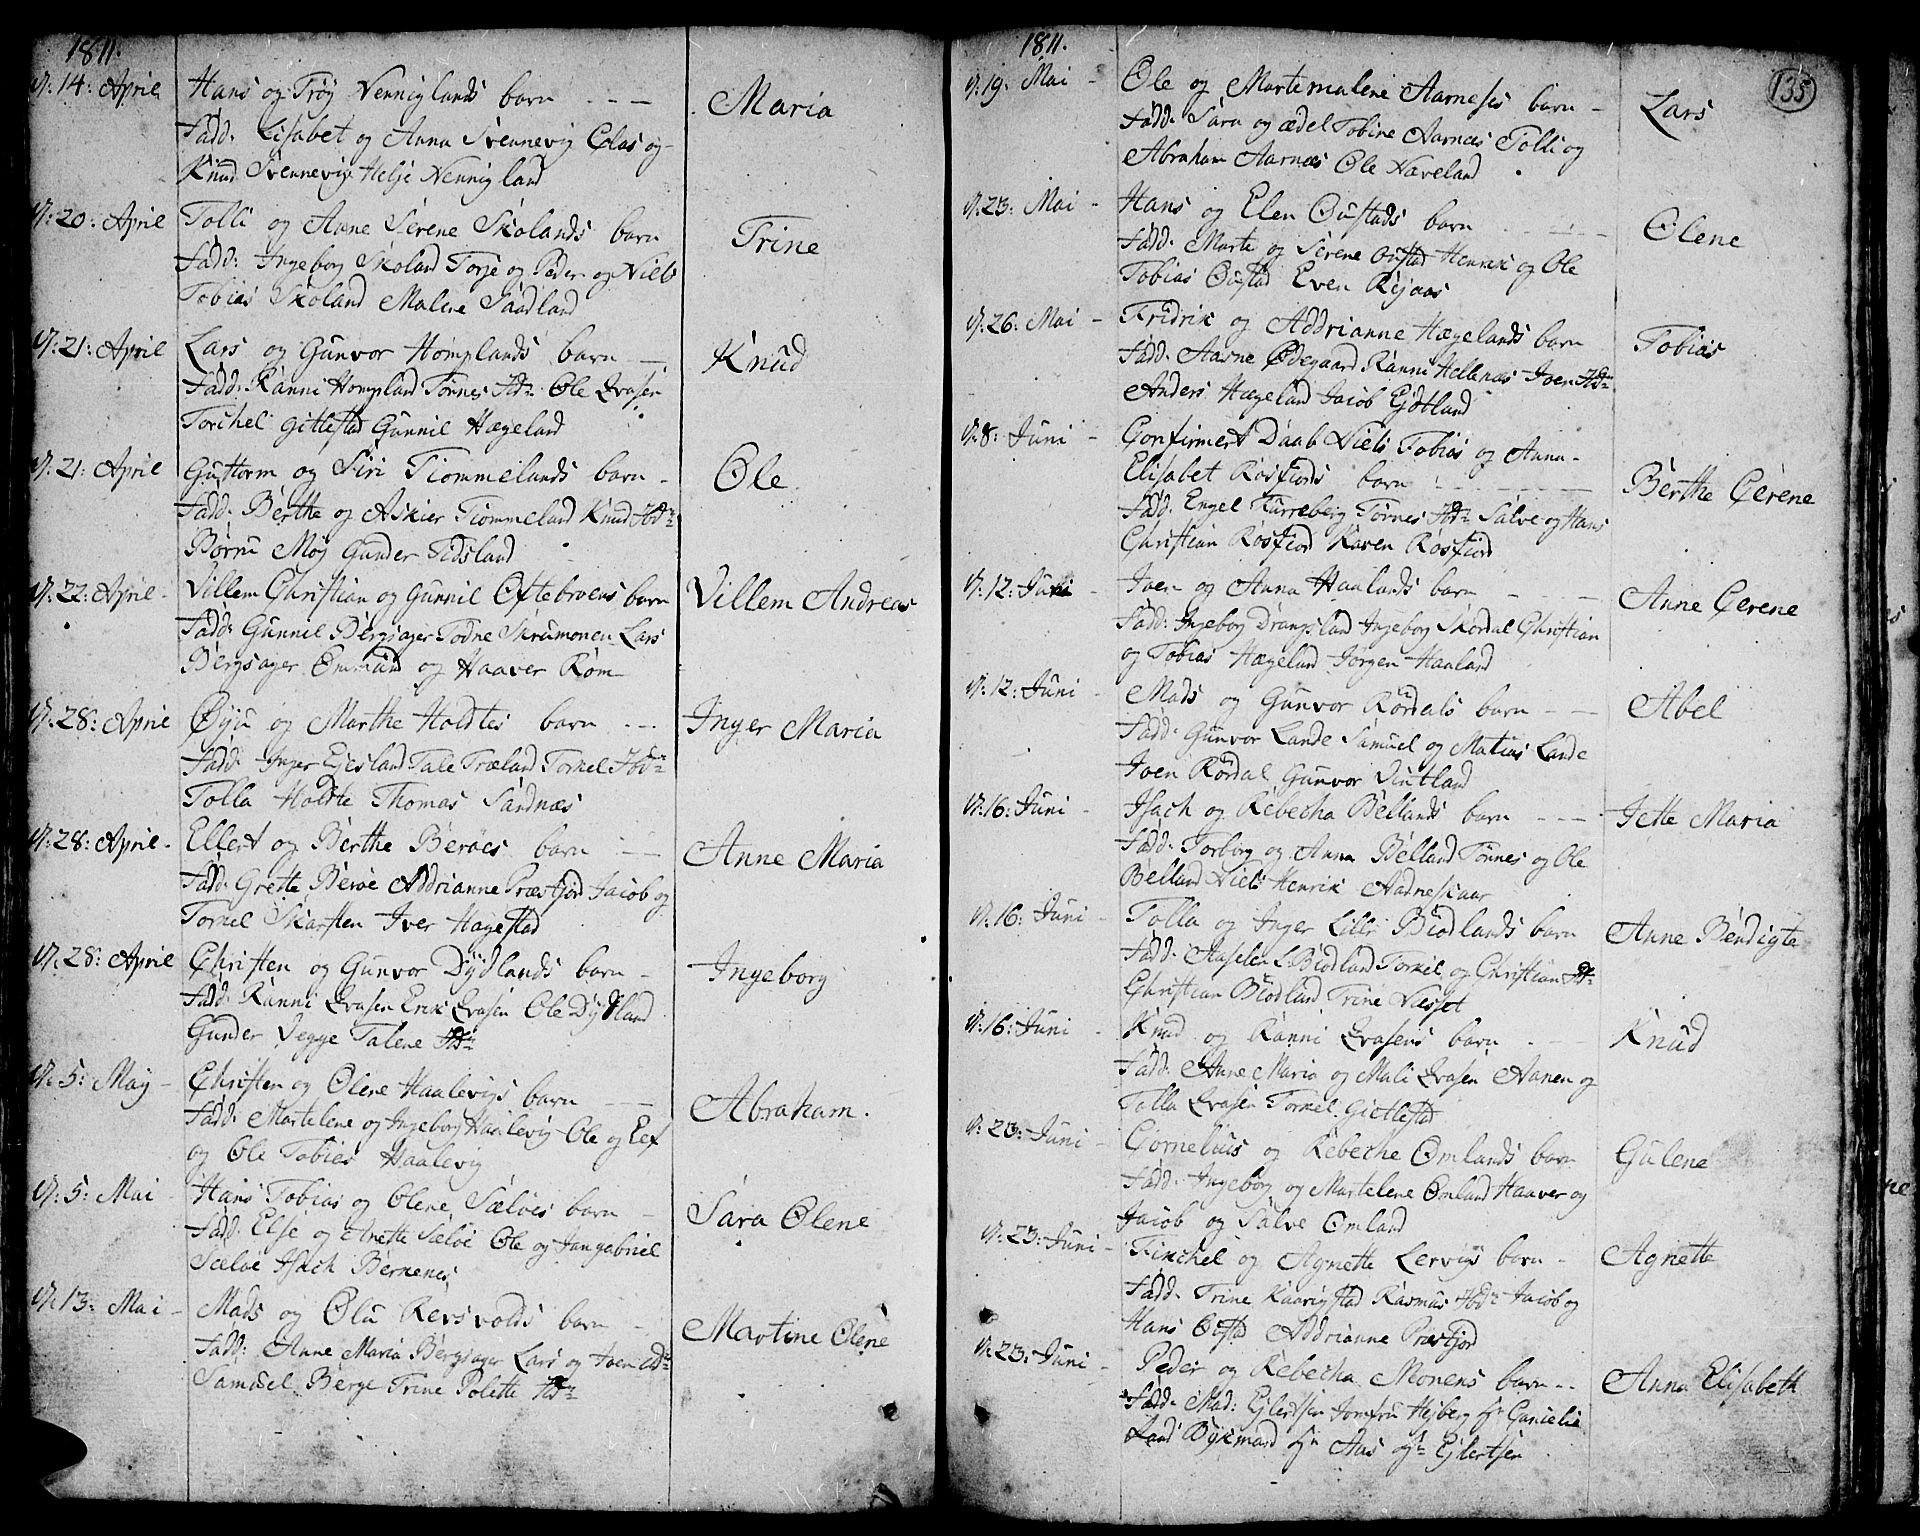 1811.
d: 14: April Hans og Trøy Nenniglands barn - - - Maria
Fadd: Lisabet og Anna Svennevig Colas og
Knud Svennevig Helje Nennigland
d: 20: April Tolli og Anne Serene Skolands barn Trine
Fadd: Ingeborg Skoland Torje og Peder og Niels
Tobias Skoland Malene Saadland
d: 21: April Lars og Gunvor Homplands barn - Knud
Fadd: Ranni Hompland Tønnes Ibd: Ole Qvasen
Torchel Gitlestad Gunnil Hægeland
d: 21: April Guttorm og Siri Tiommelands barn - Ole.
Fadd: Berthe og Askier Tiommeland Knud Ibd:
Børru Moj Gunder Tidsland
d: 22: April - Villem Christian og Gunnil Oftebroens barn Villem Andreas
Fadd: Gunnil Bergsager Todne Skrumonen Lars
Bergsager Emmund og Haaver Rom
d: 28: April Øyu og Marthe Holdtes barn - - - Inger Maria
Fadd: Inger Ejesland Tale Træland Tornel Ibd:
Tolla Holdte Thomas Sandnæs
d: 28: April - Ellert og Berthe Berøes barn - - Anne Maria
Fadd: Grette Berøe Addrianne Præstfjord Jacob og
Tornel Skarsten Iver Hagestad
d: 28: April Christen og Gunvor Dydlands barn - Ingeborg
Fadd: Ranni Qvasen Erik Qvasen Ole Dydland
Gunder Vegge Talene Ibd:
d: 5: May - Christen og Olene Haalevigs barn - - Abraham.
Fadd: Martelene og Ingeborg Haalevig Ole og Eef
og Ole Tobias Haalevig
d: 5: Mai - Hans Tobias og Olene Sæløes barn - Sara Olene
Fadd: Else og Anette Sæløe Ole og Jangabriel
Sæløe Isach Bernenes
d: 13: Mai - Mads og Olu Rersvolds barn - Martine Olene
Fadd: Anne Maria Bergsager Lars og Joen Ibd:
Samuel Berge Trine Polette Ibd:
1811.
135
d: 19: Mai - Ole og Martemalene Aarneses barn - Lars
Fadd: Sara og Ædel Tobine Aarnæs Tolli og
Abraham Aarnæs Ole Haveland
d: 23: Mai - Hans og Elen Oustads barn - - - Olene
Fadd: Marte og Serene Oustad Henrik og Ole
Tobias Oustad Even Røjaas
d: 26: Mai - Fridrik og Addrianne Hægelands barn Tobias
Fadd: Aasne Ødegaard Ranni Hellenæs Joen Ibd:
Anders Hægeland Jacob Ejdtland
d: 8: Juni - Confirmert Daab Niels Tobias og Anna-
Elisabet Rosfiords barn - - - Berthe Cerene
Fadd: Engel Furreberg Tønnes Ibd: Salve og Hans
Christian Rosfiord Karen Rosfiord
d: 12: Juni - Joen og Anna Haalands barn - - - Anne Cerene
Fadd: Ingeborg Drangsland Ingeborg Skordal Christian
og Tobias Hægeland Jørgen Haaland
d: 12: Juni - Mads og Gunvor Rørdals barn - - Abel
Fadd: Gunvor Lande Samuel og Matias Lande
Joen Rørdal Gunvor Vintland
d: 16: Juni - Isach og Rebecha Bellands barn - - - Jette Maria
Fadd: Torborg og Anna Belland Tønnes og Ole
Belland Niels Henrik Aadneskaar
d: 16: Juni - Tolla og Inger Lille Biodlands barn Anne Bendigte
Fadd: Aaselen L Biodland Tornel og Christian Ibd:
Christian Biodland Trine Væsset
d: 16: Juni - Knud og Ranni Qvasens barn - - - Knud
Fadd: Anne Maria og Mali Qvasen Aanen og
Tolla Qvasen Tornel Gietlestad
d: 23: Juni - Cornelius og Rebecha Omlands barn Gulene
Fadd: Ingeborg og Martelene Omland Haaver og
Jacob og Salve Omland
d: 23: Juni - Tinchel og Agnette Lervigs barn - Agnette
Fadd: Trine Kaarigstad Rasmus Ibd: Jacob og
Hans Oustad Addrianne Præstfjord
d: 23: Juni - Peder og Rebecha Monens barn - - Anna Elisabeth
Fadd: Mad: Ejlertsen Jomfru Hejberg Hr Gunielie
Lund Byemand Hr Aas og Hr Ejlertsen